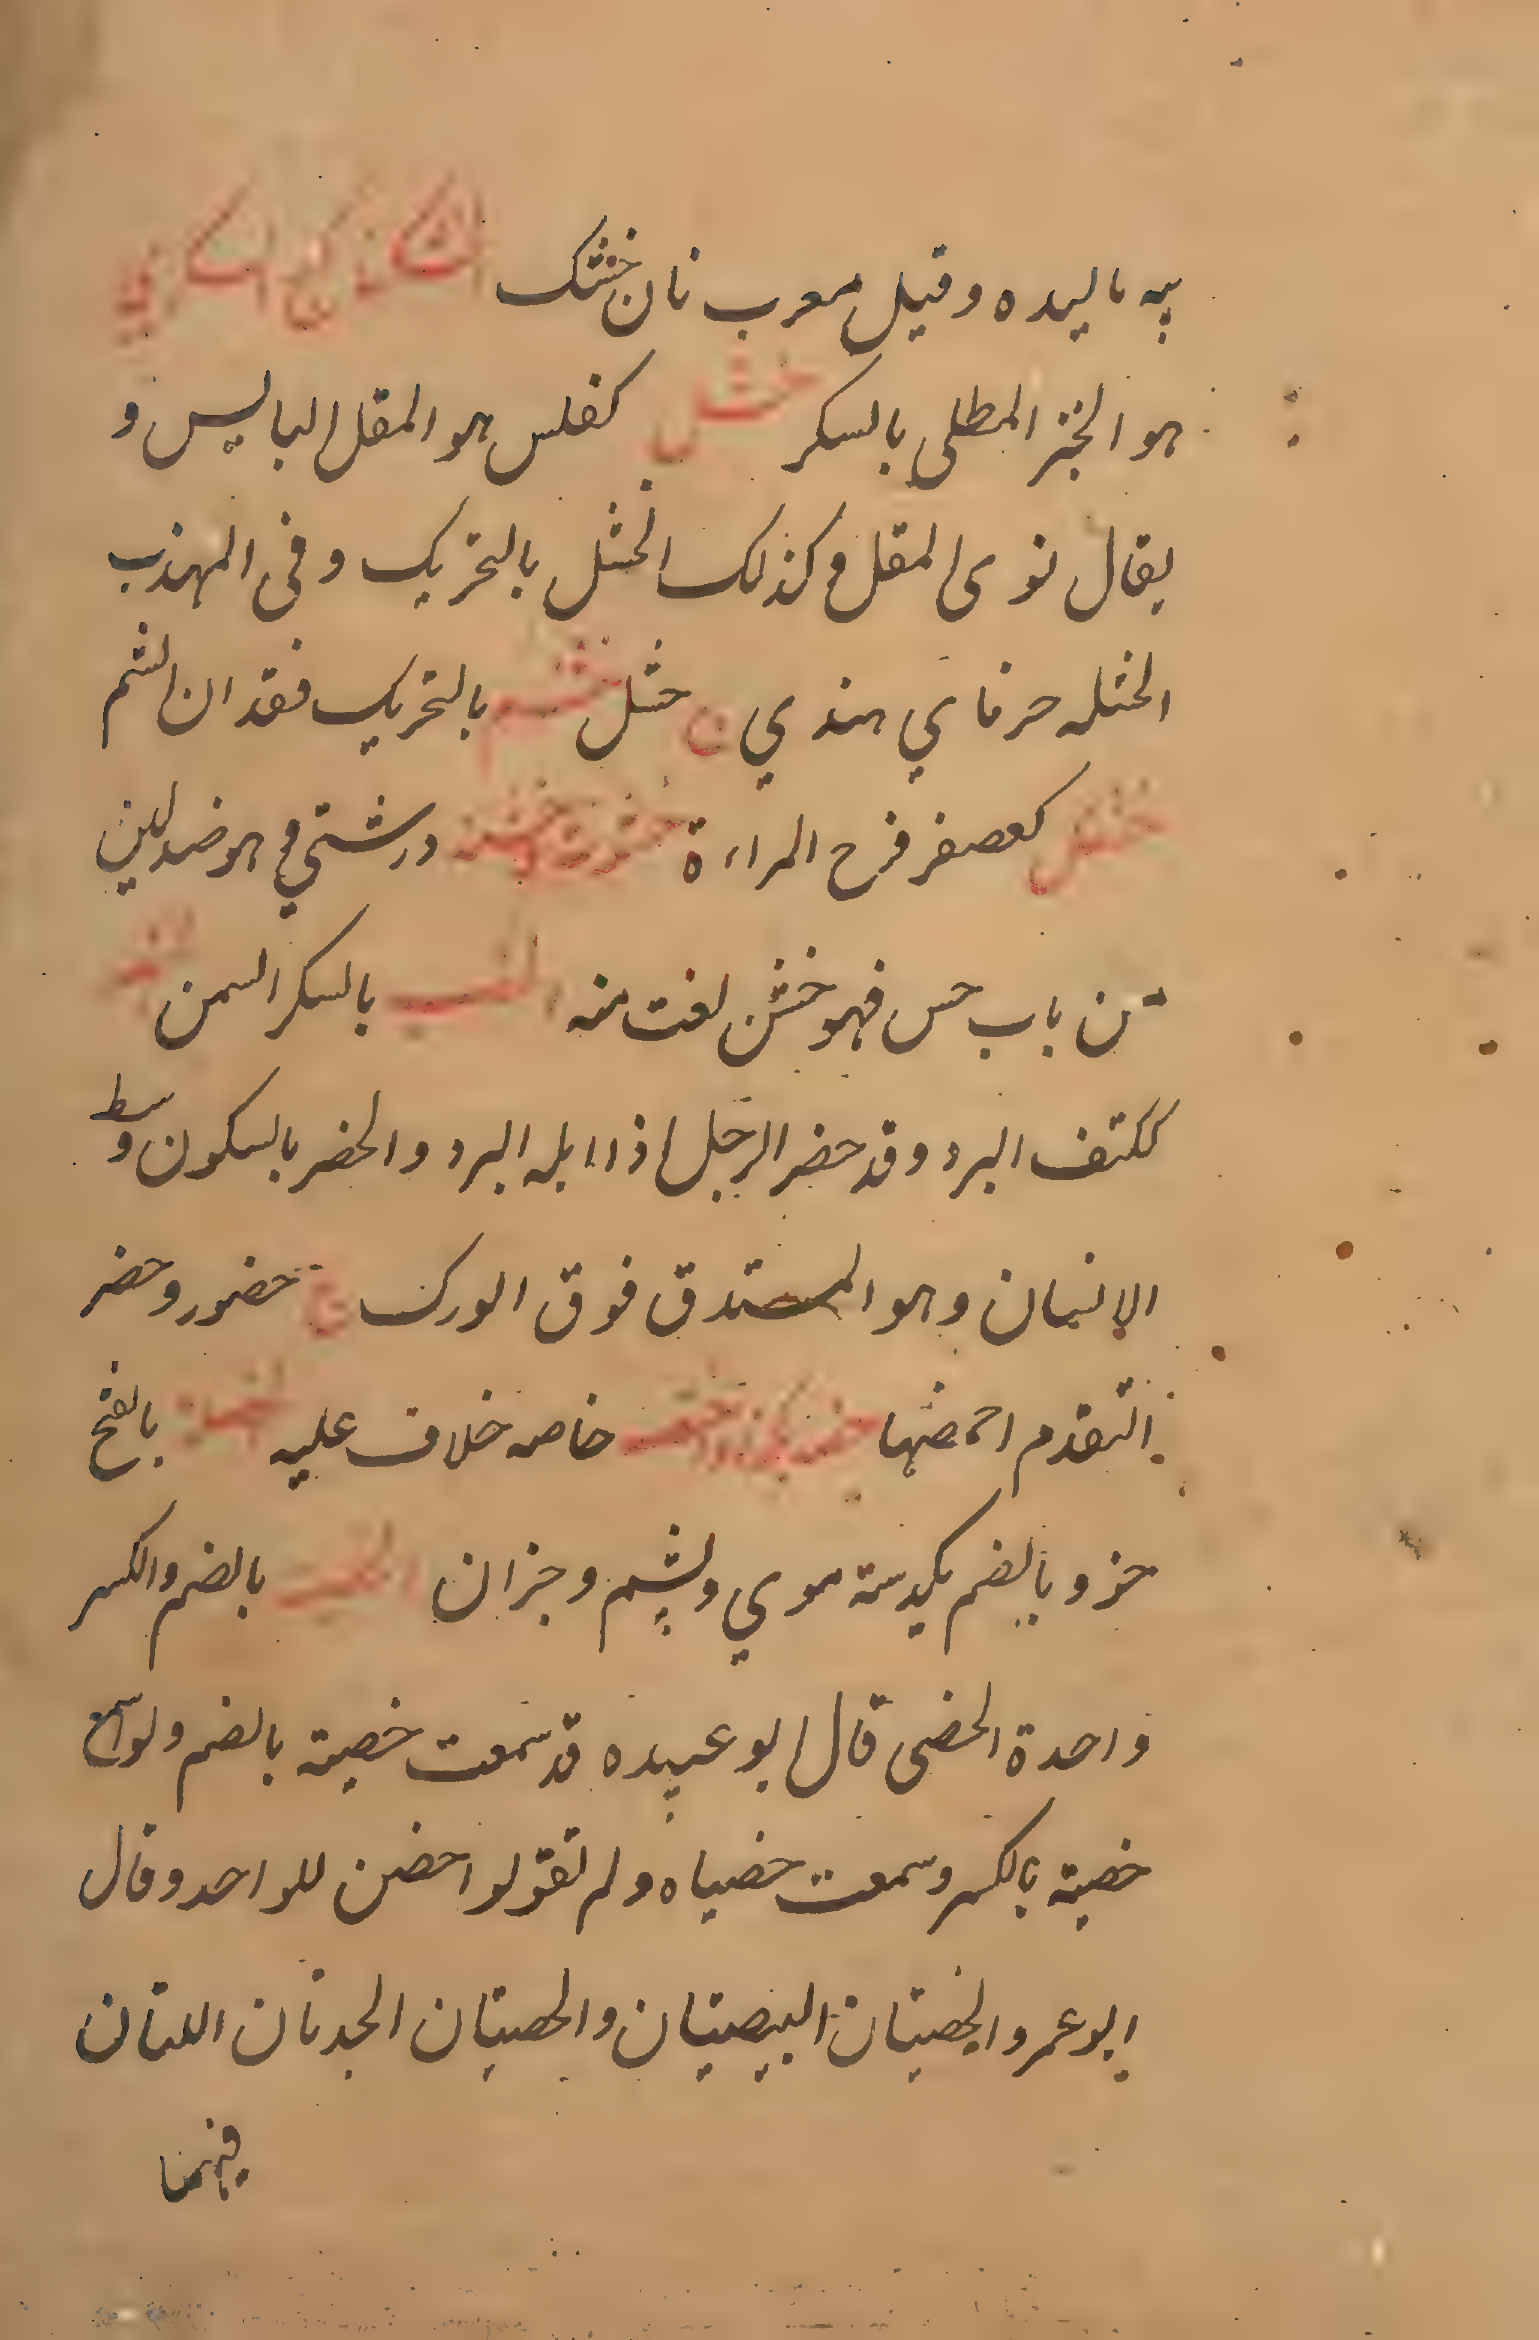 به ماليده وقيل معرب نان خشك
هو الخبز المطلى بالسكر خشل كفلس هو المقل اليابس و
يقال نوى المقل وكذلك الخشل بالتحريك وفى المهذب
الخشله خرماي هندي ج خشل خشم بالتحريك فقدان الشم
خشفل كعصفر فرح المراءة خشونت درشتي وهو ضد اللين
من باب حسن فهو خشن لغت منه بالسكر السمن
ككتف البرد وقد حضر الرجل اذا ابله البرد والحضر بالسكون وسط
الانسان وهو المستدق فوق الورك ج حضور وحضر
التقدم احمضها خاصه خلاف عليه بالفتح
حزو بالضم يكدسته موي وپشم وجزان بالضم والكسر
واحدة الخصى قال ابو عبيده قد سمعت خصية بالضم ولو اسمع
خصية بالكسر وسمعت خصياه ولم تقولوا خصى للواحد وقال
ابو عمرو الخصيتان البيضتان والخصيتان الجدتان اللتان
فيهما